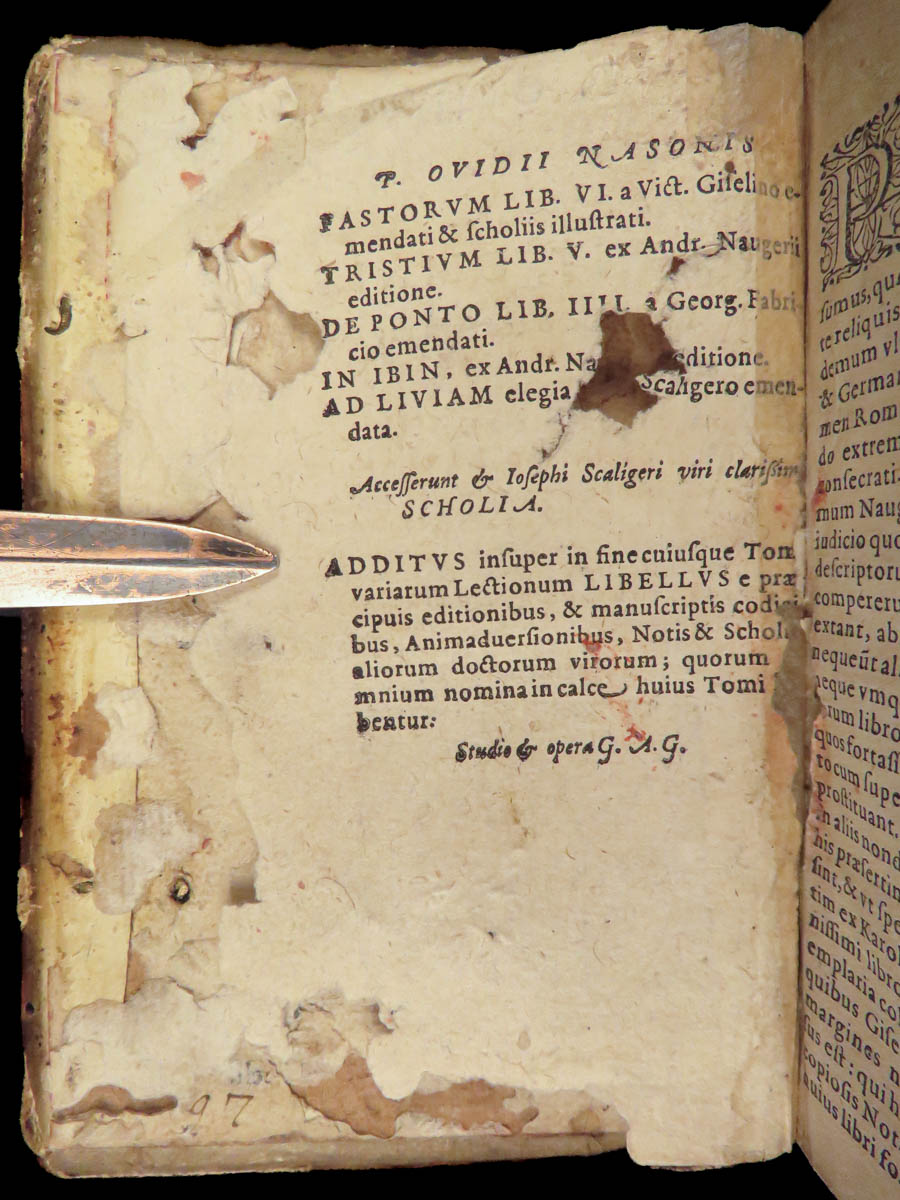 P. OVIDII NASONIS
FASTORVM LIB. VI. a Vict. Giſelino e-
mendati & ſcholiis illuſtrati.
TRISTIVM LIB. V. ex Andr. Naugerii
editione.
DE PONTO LIB. IIII. a Georg. Fabri-
cio emendati.
IN IBIN, ex Andr. Na ditione.
AD LIVIAM elegia Scaligero emen-
data.
Acceſſerunt & Ioſephi Scaligeri viri clariſſim
SCHOLIA.
ADDITVS inſuper in fine cuiuſque Tom
variarum Lectionum LIBELLVS e præ
cipuis editionibus, & manuſcriptis codici
bus, Animaduerſionibus, Notis & Schol
aliorum doctorum virorum; quorum
mnium nomina in calce huius Tomi
bentur:
Studio & opera G. A. G.
97
P
ſumus, qu
te reliquis
demum vl
& German
men Rom
do extrem
conſecrati
mum Naug
iudicio quo
deſcriptoru
compereru
extant, ab
nequeũt al
neque vmq
rum libro
quos fortaſſ
to cum ſupe
proſtituant.
in aliis nond
his præſertin
ſint, & vt ſpe
tim ex Karol
niſſimi libro
emplaria col
quibus Giſe
margines n
ſus eſt: qui h
copioſis Not
auius libri fo